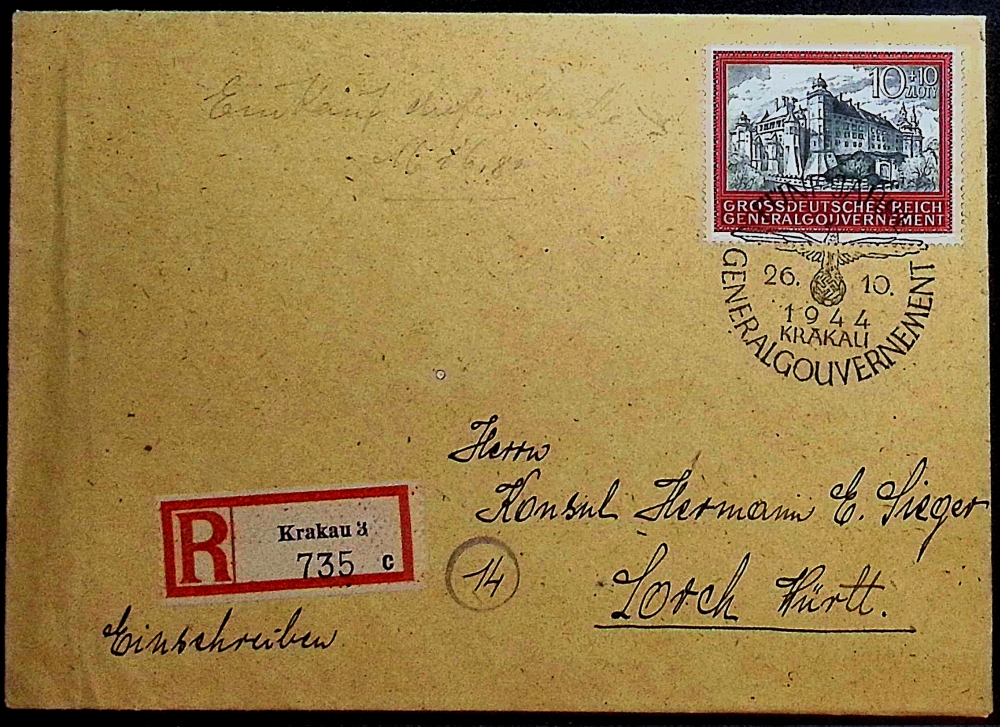 10+10
ZŁOTY
GROSSDEUTSCHES REICH
GENERALGOUVERNEMENT
FÜNF JAHRE
26. 10.
1944
KRAKAU
GENERALGOUVERNEMENT
Herrn
Konsul Hermann E. Sieger
R
Krakau 3
735 c
14
Lorch Württ.
Einschreiben